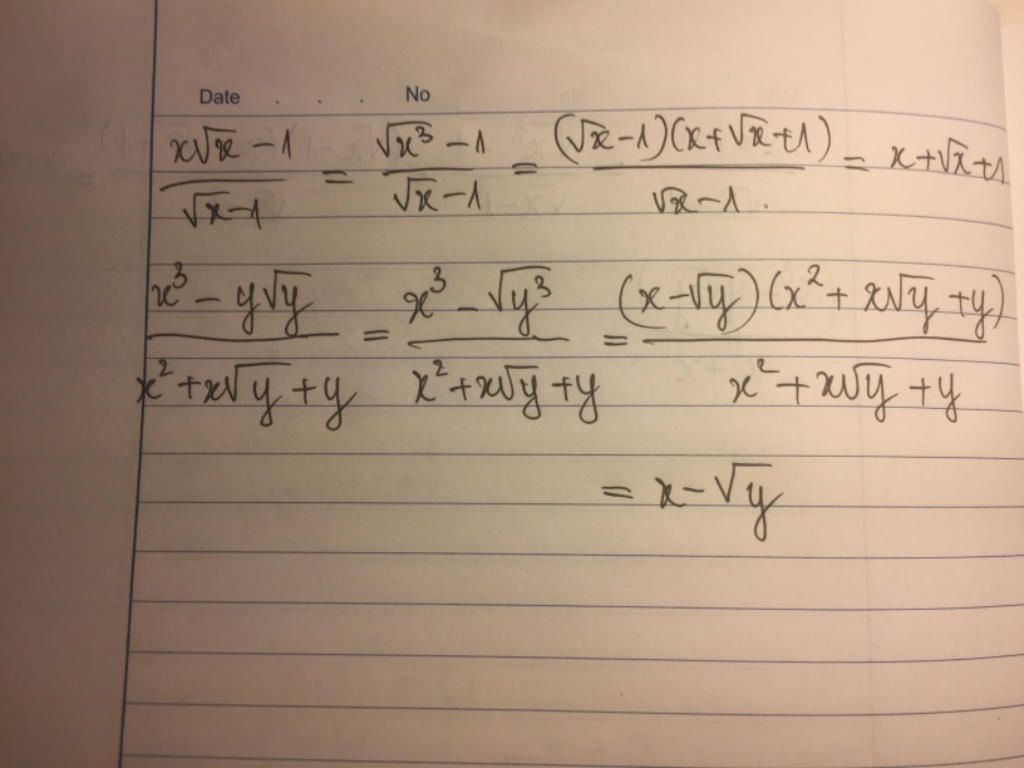 Date . . . No
(x√x − 1)/(√x − 1) = (√x³ − 1)/(√x − 1) = (√x − 1)(x + √x + 1)/(√x − 1) = x + √x + 1
(x³ − y√y)/(x² + x√y + y) = (x³ − √y³)/(x² + x√y + y) = (x − √y)(x² + x√y + y)/(x² + x√y + y)
= x − √y